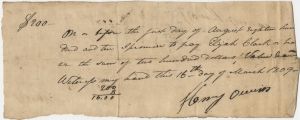 $200
On or before the first day of August eighteen hun
dred and ten I promise to pay Elijah Clark
the sum of two hundred dollars, Value
Witness my hand this 16th day of March 1809
200
16.00
Henry Owens